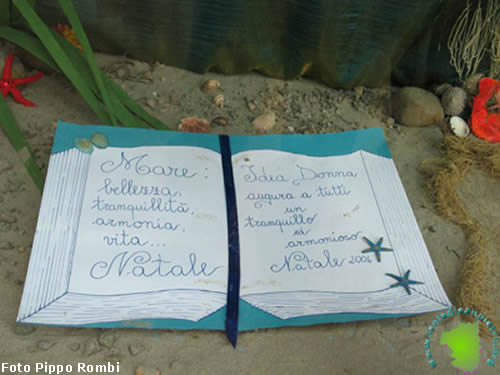 Mare:
bellezza,
tranquillità,
armonia,
vita...
Natale
Idea Donna
augura a tutti
un
tranquillo
ed
armonioso
Natale 2006
Foto Pippo Rombi